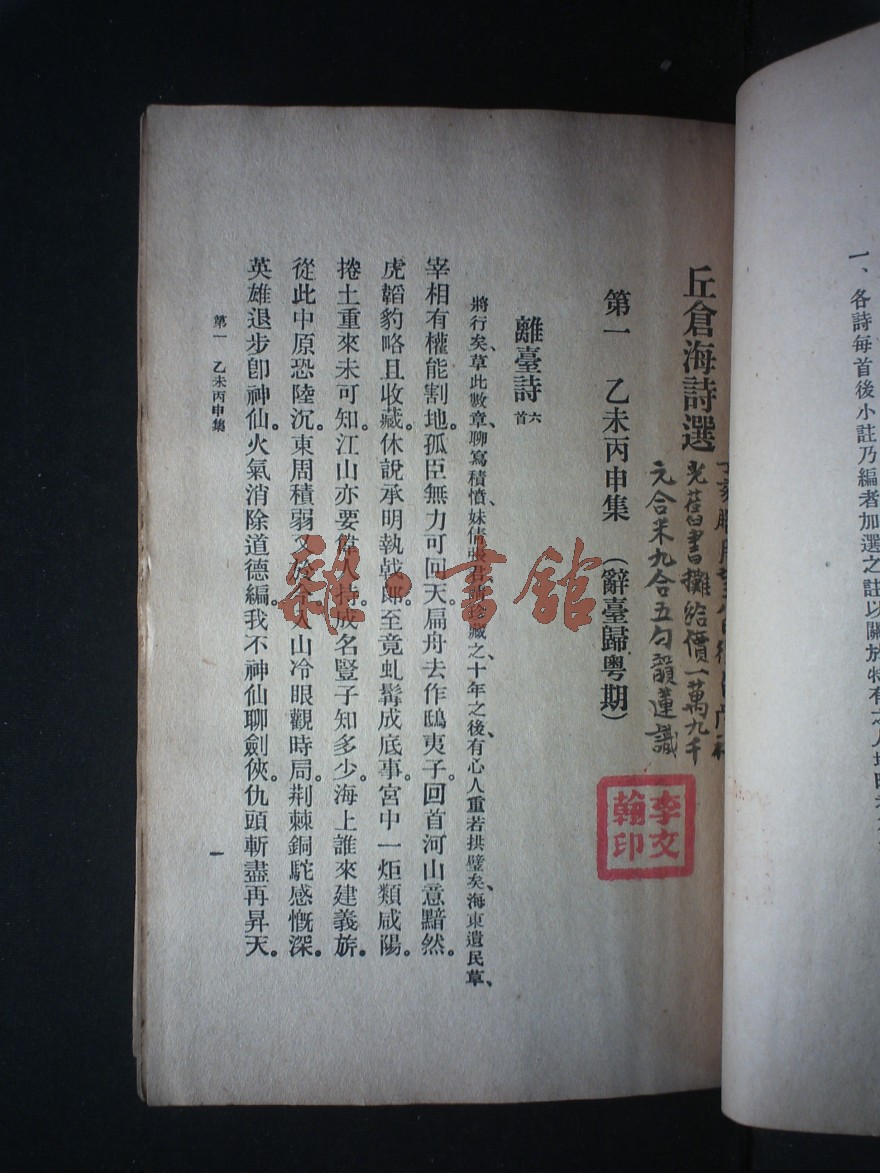 一、各詩每首後小註乃編者加選之註以關於特有之人地時
丘倉海詩選
光舊書攤給價一萬九千
元合米九合五勺韻蓮識
李文翰印
第一 乙未丙申集 (辭臺歸粵期)
離臺詩 六首
將行矣、草此數章、聊寫積憤、妹倩張君請珍藏之、十年之後、有心人重若拱璧矣、海東遺民草、
宰相有權能割地。孤臣無力可回天。扁舟去作鴟夷子。回首河山意黯然。
虎韜豹略且收藏。休說承明執戟郎。至竟虬髯成底事。宮中一炬類咸陽。
捲土重來未可知。江山亦要偉人持。成名豎子知多少。海上誰來建義旂。
從此中原恐陸沉。東周積弱又於今。入山冷眼觀時局。荆棘銅駝感慨深。
英雄退步卽神仙。火氣消除道德編。我不神仙聊劍俠。仇頭斬盡再昇天。
第一 乙未丙申集
一
雜·書館